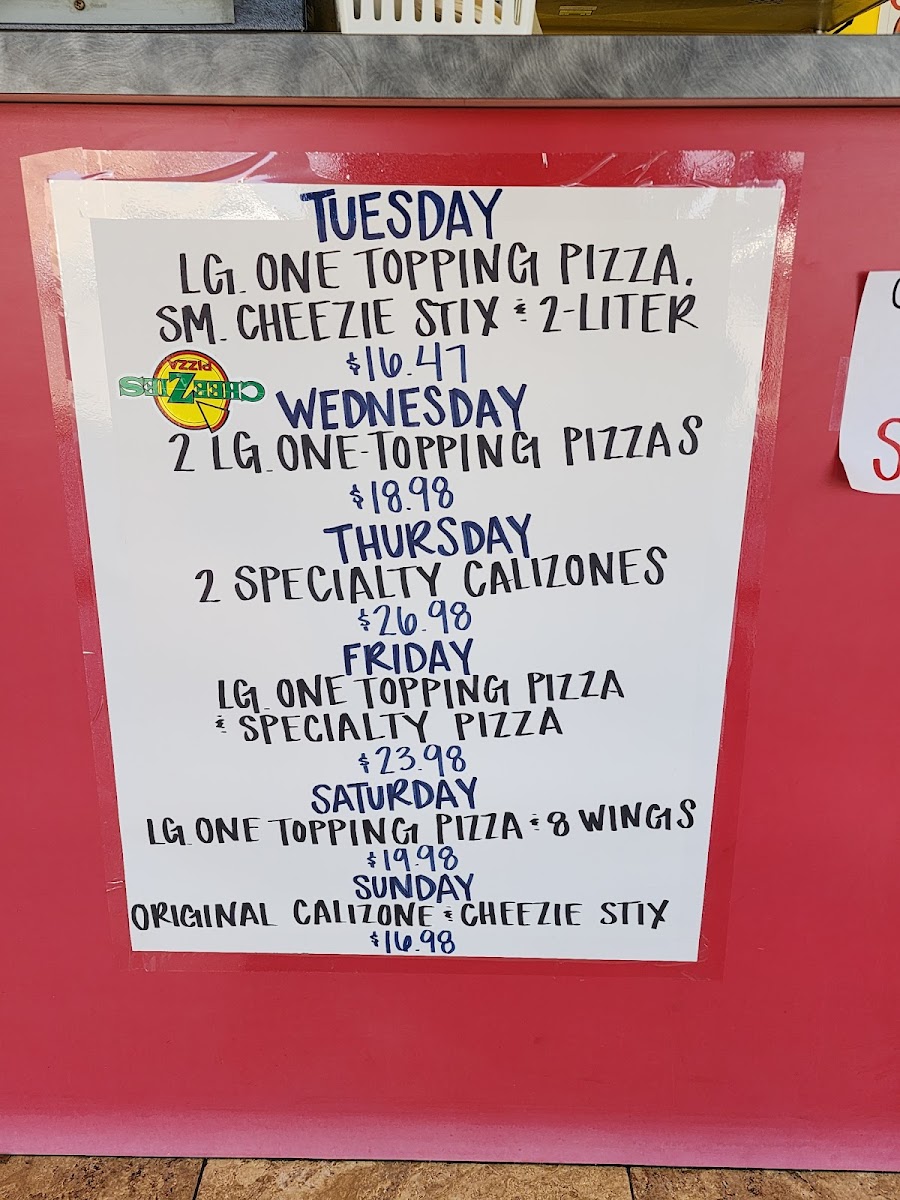 TUESDAY
LG. ONE TOPPING PIZZA,
SM. CHEEZIE STIX & 2-LITER
$16.47
CHEEZIES
PIZZA
WEDNESDAY
2 LG. ONE-TOPPING PIZZAS
$18.98
THURSDAY
2 SPECIALTY CALIZONES
$26.98
FRIDAY
LG. ONE TOPPING PIZZA
& SPECIALTY PIZZA
$23.98
SATURDAY
LG. ONE TOPPING PIZZA & 8 WINGS
$19.98
SUNDAY
ORIGINAL CALIZONE & CHEEZIE STIX
$16.98